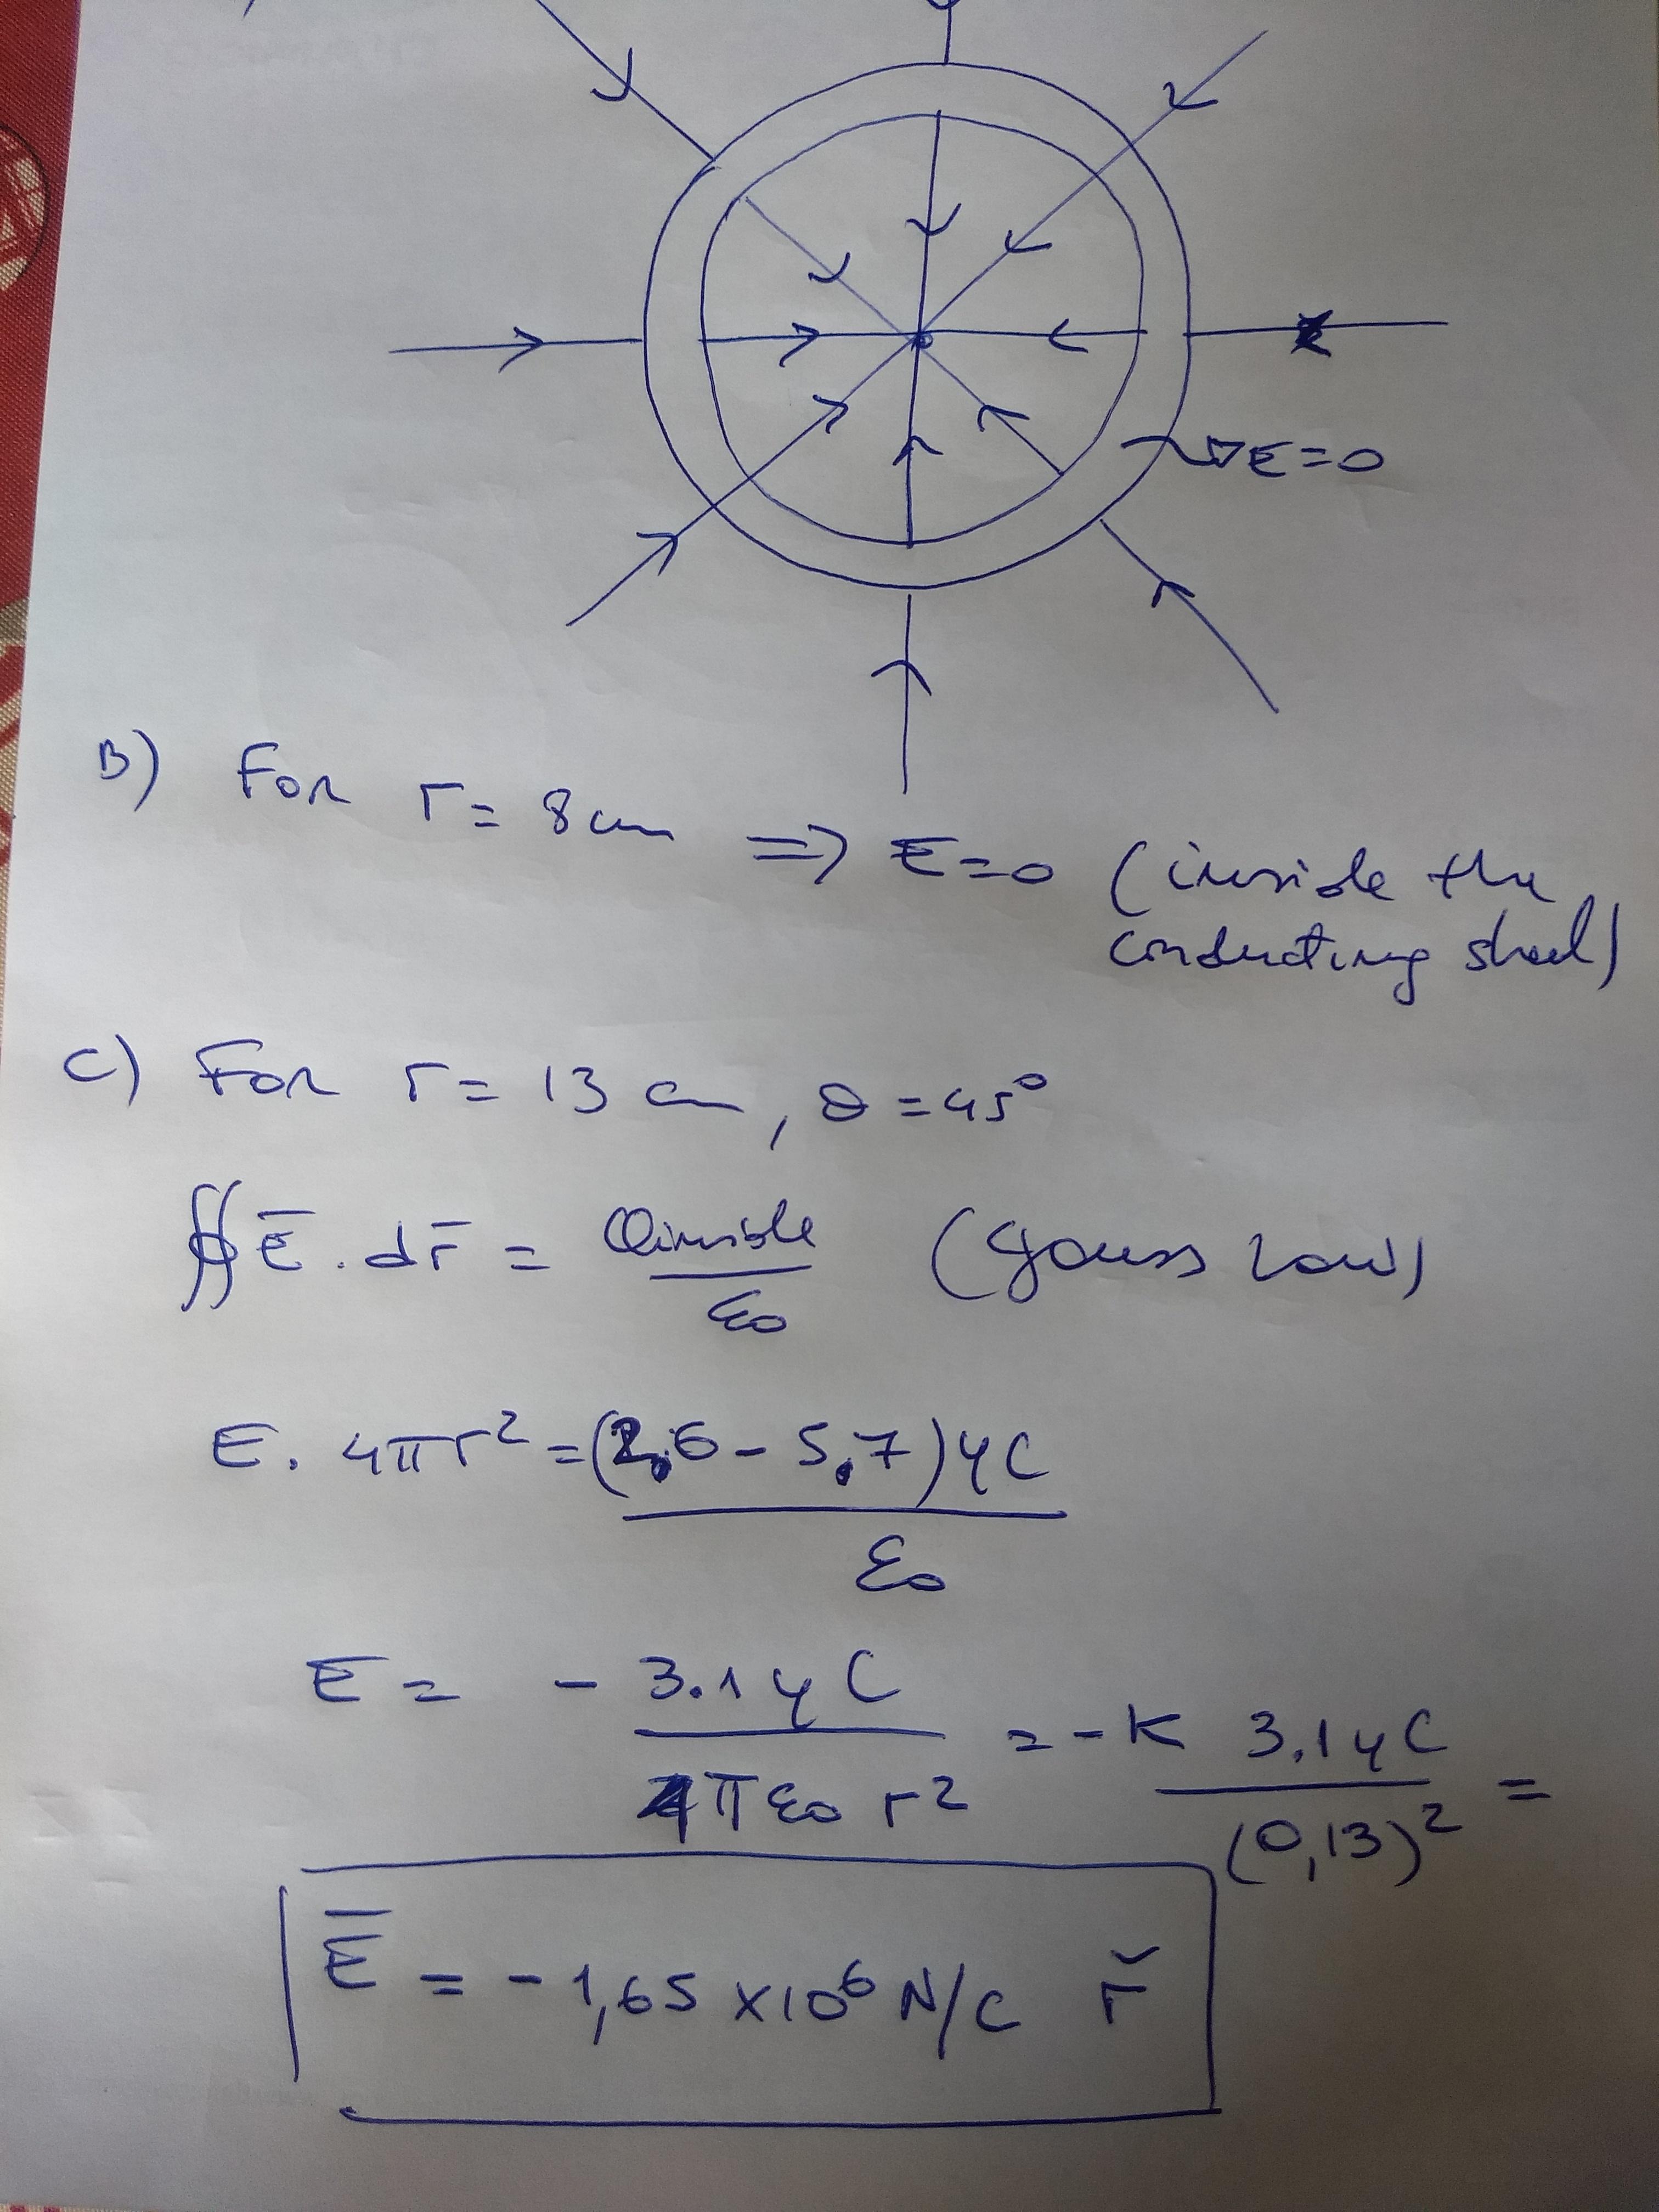 E=0
B) For r= 8cm => E=0 (inside the
conducting shell)
C) For r= 13 cm, θ=45°
∯ E̅ . dr̅ = Qinside / ε₀ (Gauss Law)
E. 4πr² = (2,6 - 5,7)μC / ε₀
E = - 3.1μC / 4πε₀ r² = -K 3.1μC / (0,13)² =
E̅ = -1,65 x10⁶ N/C r̆